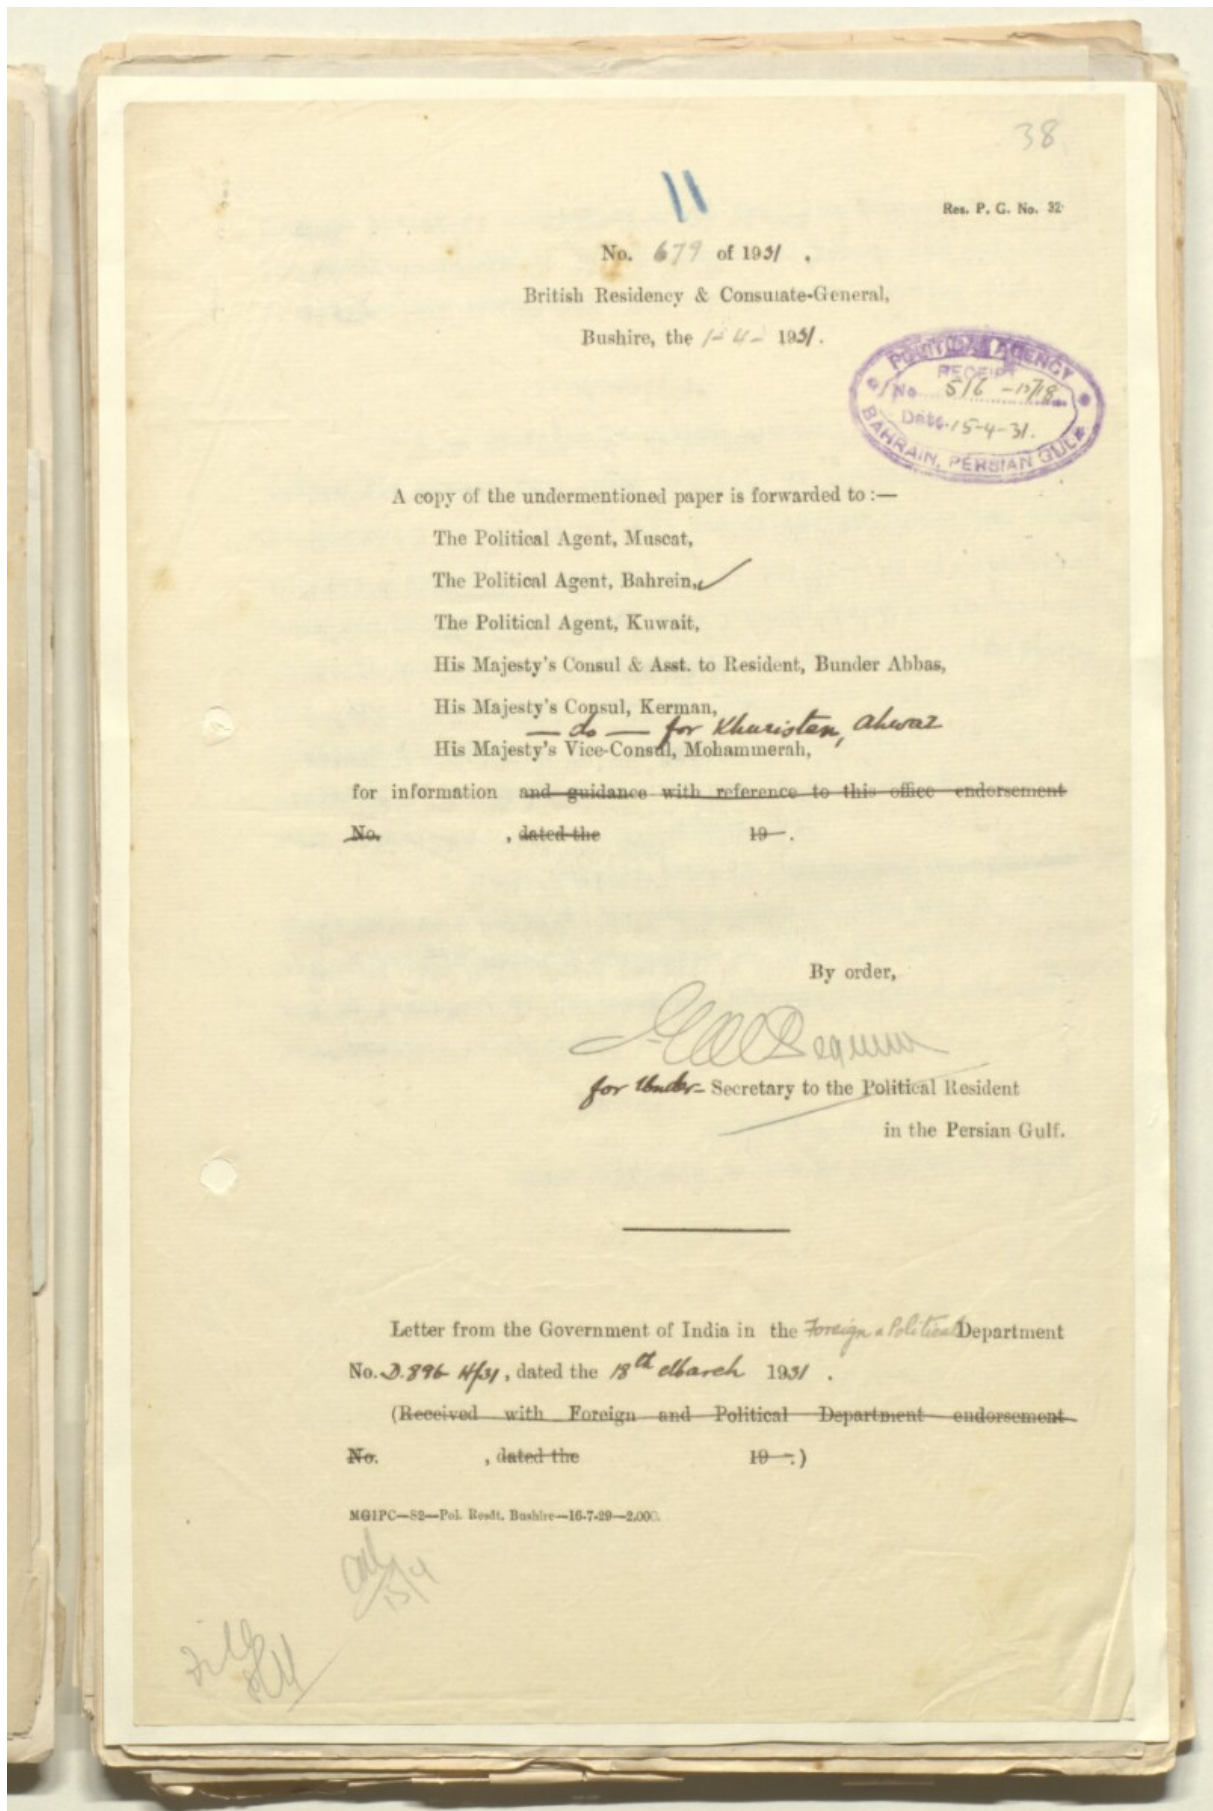 38
11
Res. P. G. No. 32
No. 679 of 1931.
British Residency & Consulate-General,
Bushire, the 1-4- 1931.
POLITICAL AGENCY
RECEIPT
No. 516
Date. 15-4-31.
BAHRAIN, PERSIAN GULF
A copy of the undermentioned paper is forwarded to :—
The Political Agent, Muscat,
The Political Agent, Bahrein,
The Political Agent, Kuwait,
His Majesty's Consul & Asst. to Resident, Bunder Abbas,
His Majesty's Consul, Kerman,
— do — for Khuristan, Ahwaz
His Majesty's Vice-Consul, Mohammerah,
for information and guidance with reference to this office endorsement
No. , dated the 19 .
By order,
for Under- Secretary to the Political Resident
in the Persian Gulf.
Letter from the Government of India in the Foreign & Political Department
No. D. 896-N/31, dated the 18th March 1931 .
(Received with Foreign and Political Department endorsement
No. , dated the 19 .)
MGIPC—S2—Pol. Resdt. Bushire—16-7-29—2,000.
15/4
File